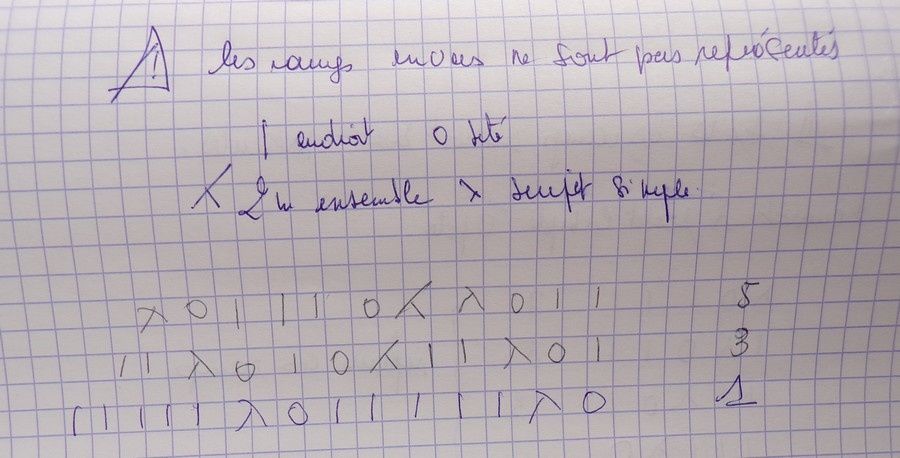 ⚠ les rangs envers ne sont pas représentés
| endroit O jeté
⼃ 2m ensemble λ surjet simple
λ O | | | O ⼃ λ O | | 5
| | λ O | O ⼃ | | λ O | 3
| | | | | λ O | | | | | | λ O 1